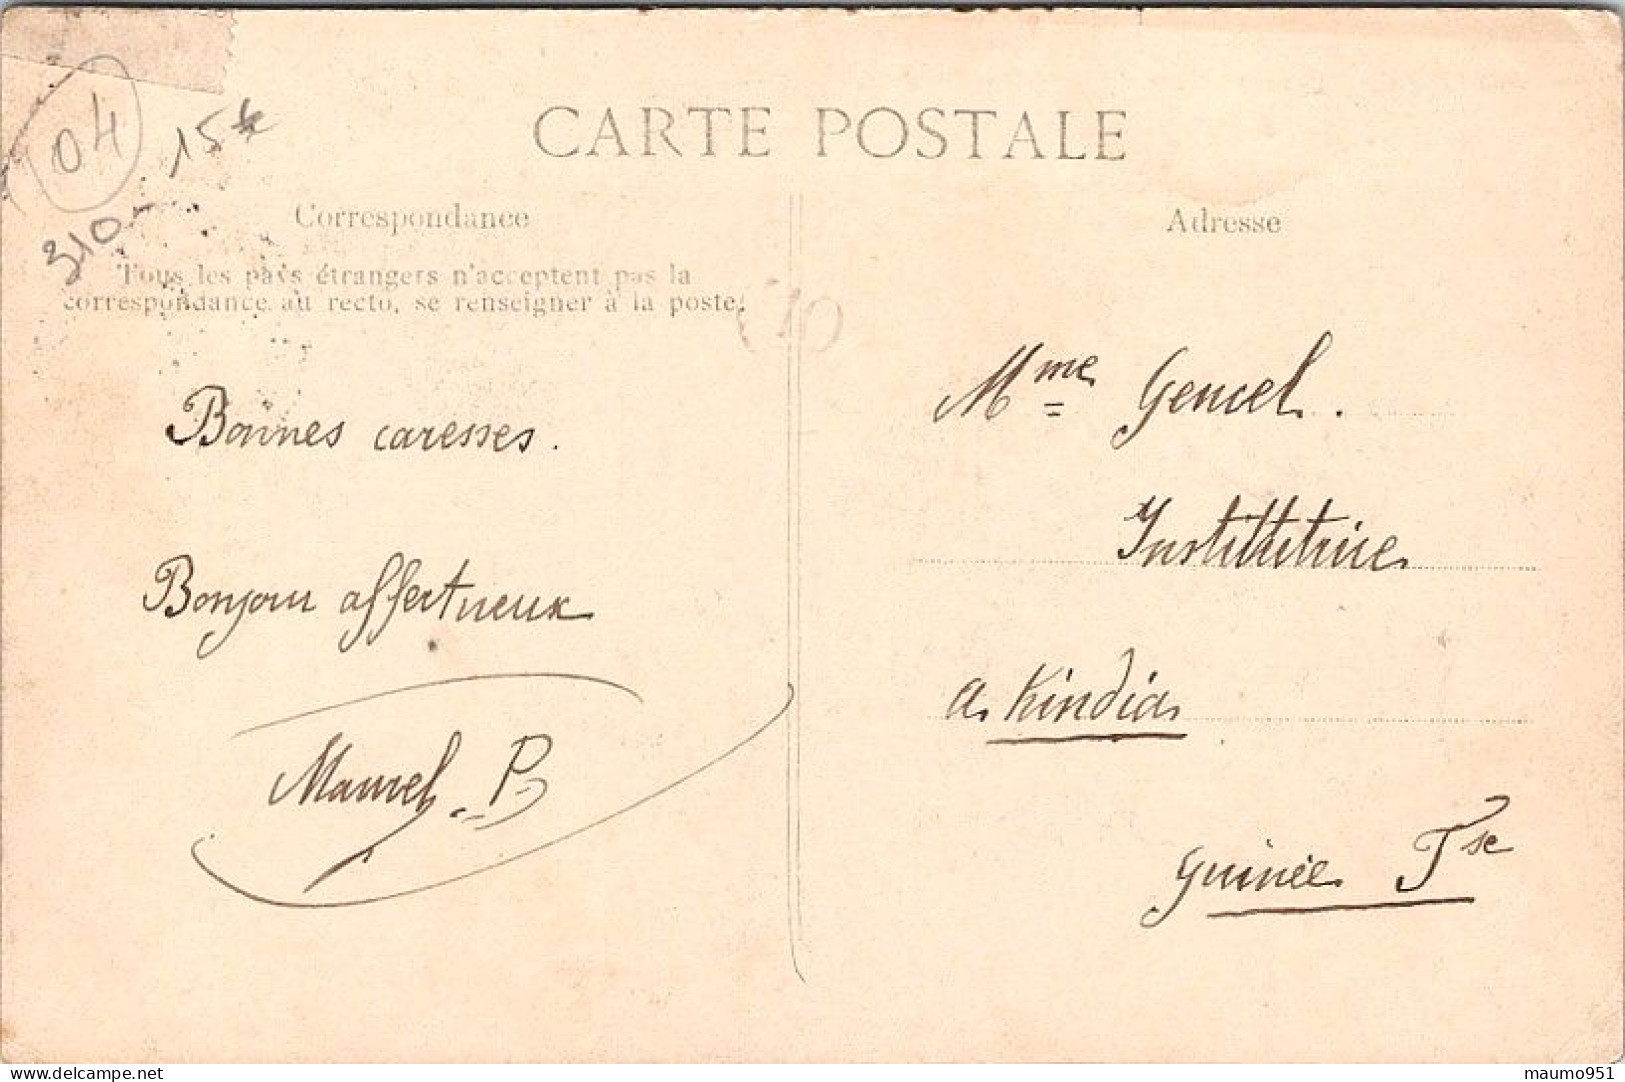 04
310 - 15€
CARTE POSTALE
Correspondance
Tous les pays étrangers n'acceptent pas la
correspondance au recto, se renseigner à la poste.
Bonnes caresses.
Bonjour affectueux
Maurel P
Adresse
Mme Gencel.
Instittutrice
a Kindia
Guinée Fse
delcampe.net
maumo951